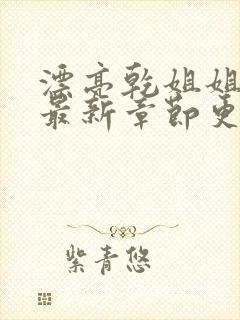 漂亮乾姐姐
最新章节更
紫青悠